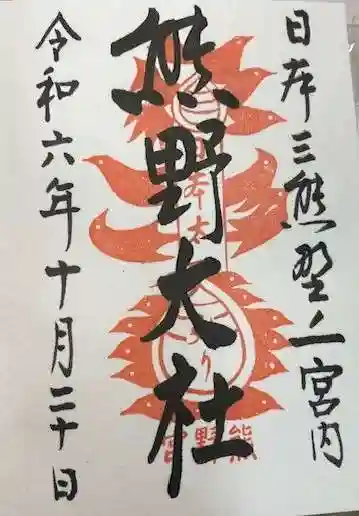 日本三熊野ノ宮内
熊野大社
令和六年十月二十日
日本大
熊野宮